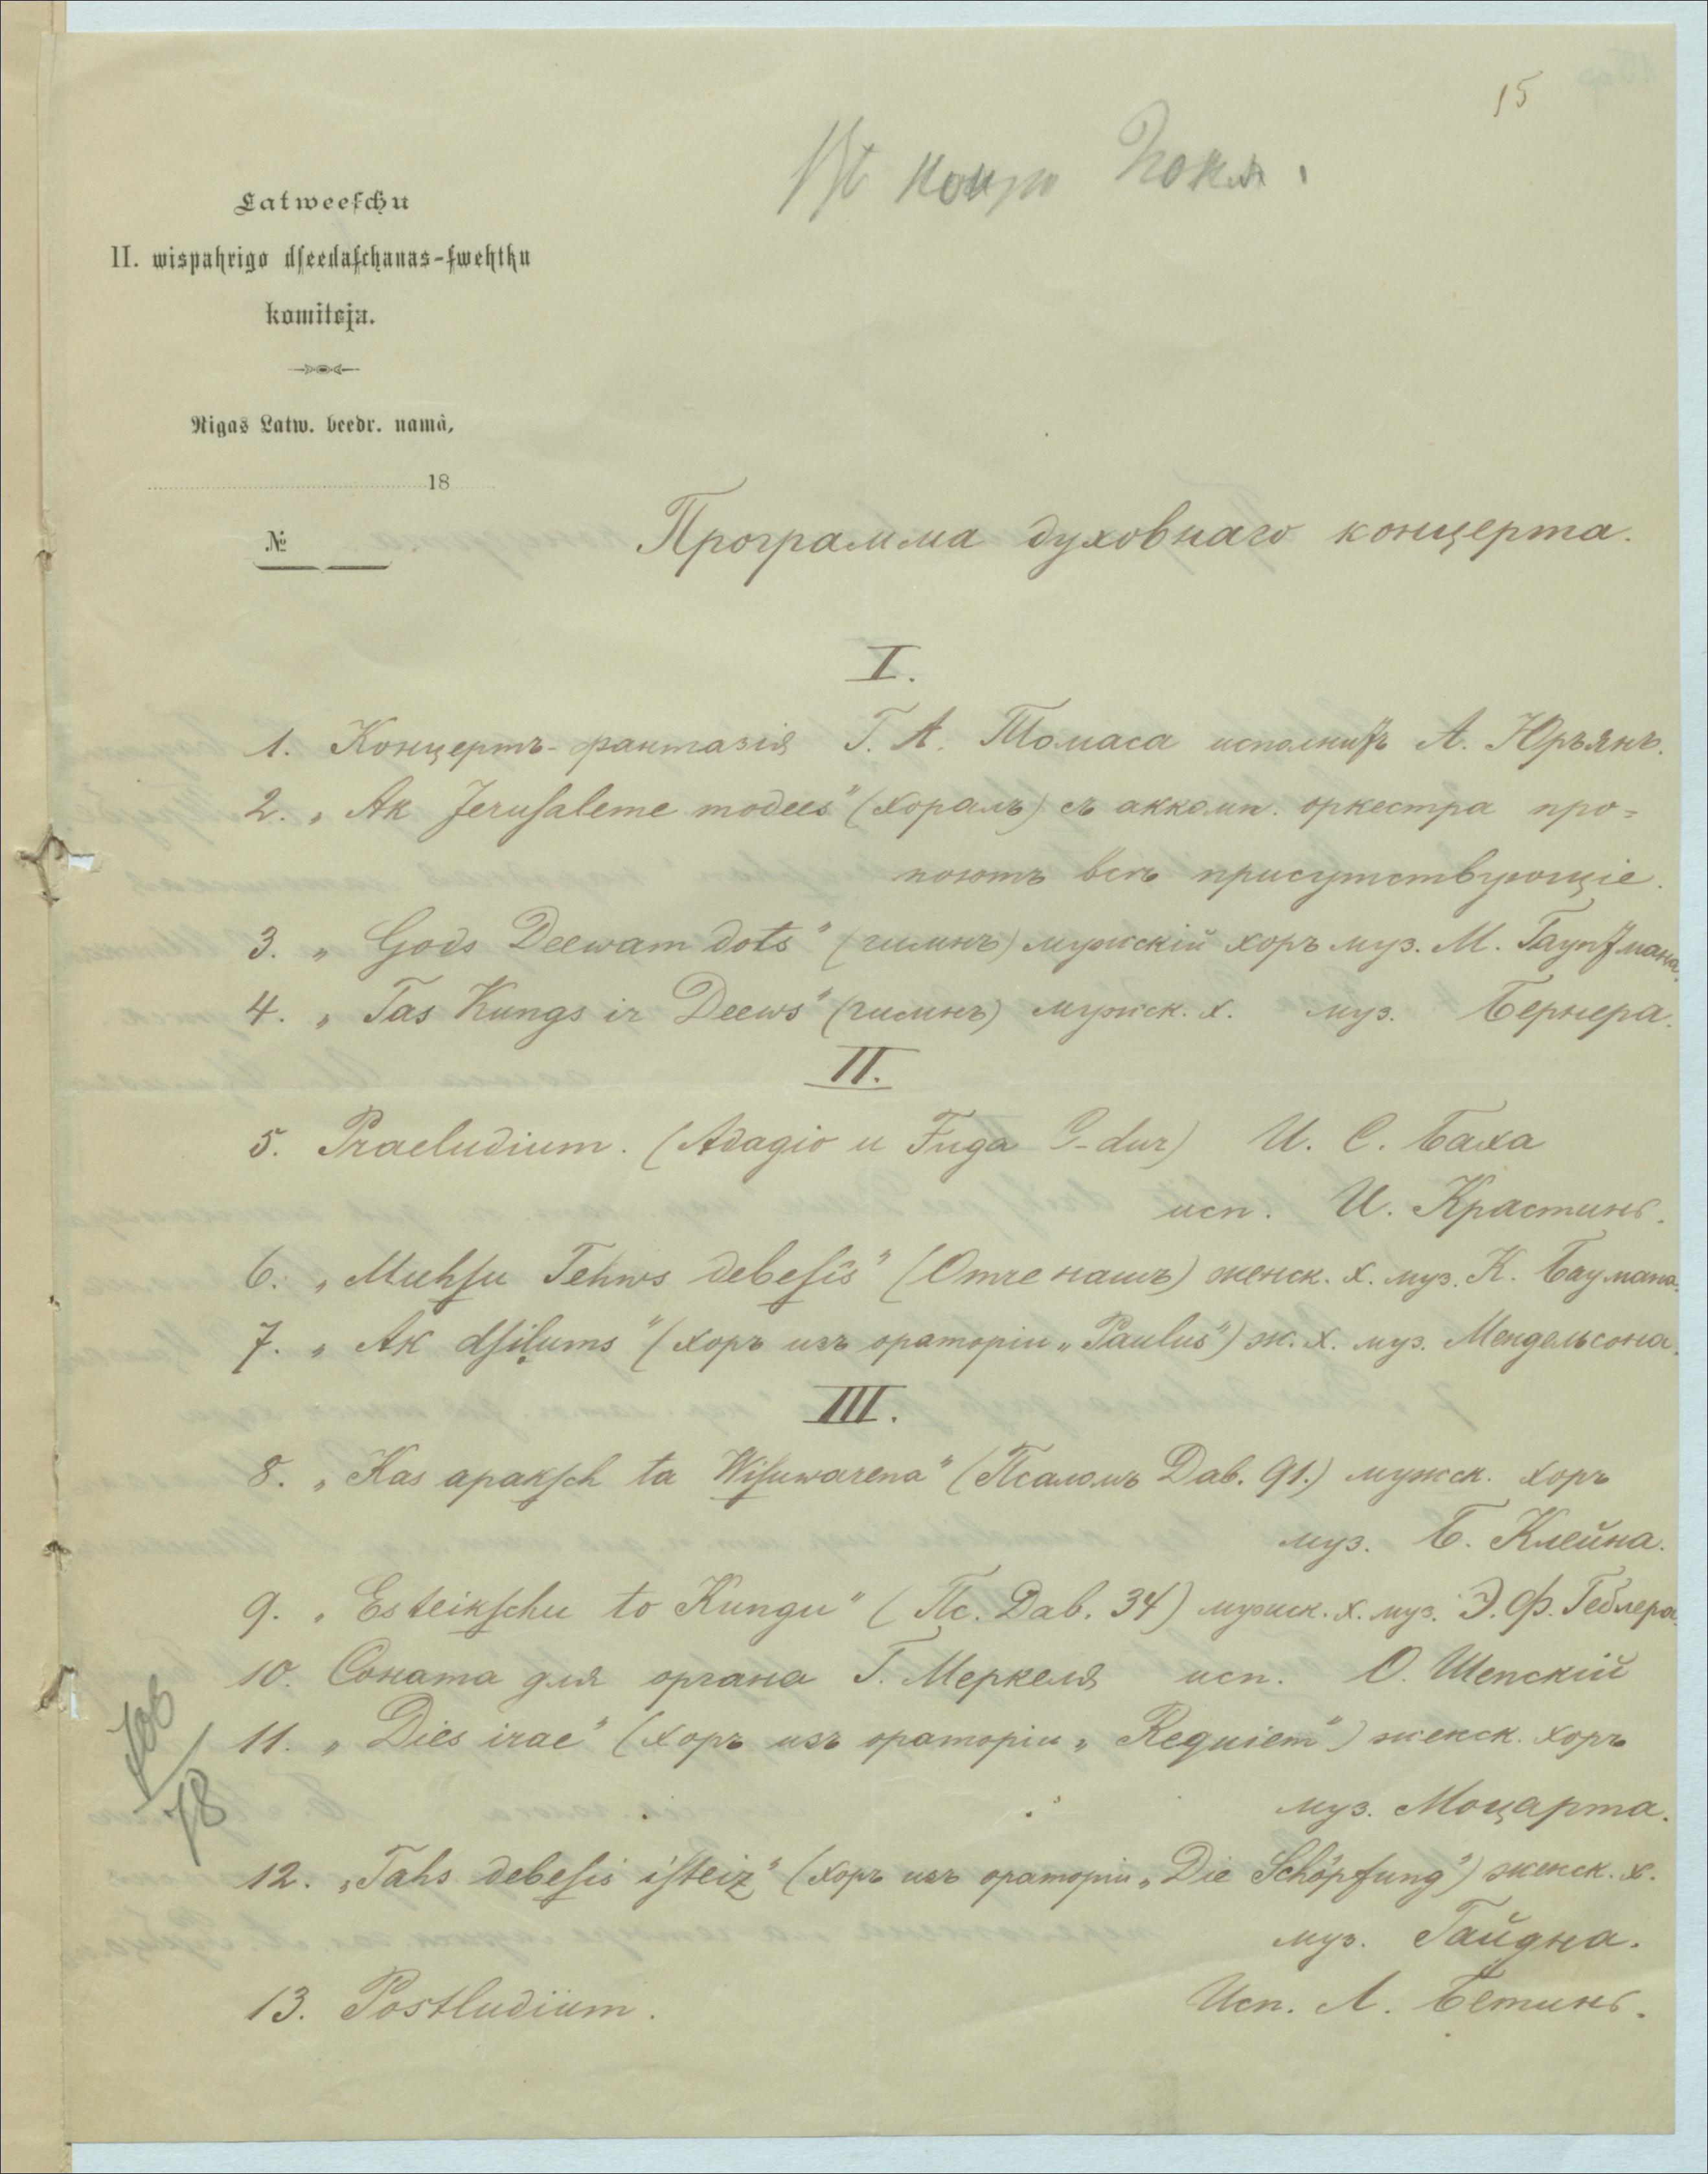 15
Latweeſchu
II. wispahrigo dſeedaſchanas-ſwehtku
komiteja.
Rigas Latw. beedr. namâ,
18
№
Программа духовнаго концерта.
I.
1. Концертъ-фантазія Г. А. Томаса исполнитъ А. Юръянъ.
2. „Ak Jeruſaleme modees" (хоралъ) съ аккомп. оркестра про=
поютъ всѣ присутствующіе.
3. „Gods Deewam dots" (гимнъ) мужскій хоръ муз. М. Гауптмана.
4. „Tas Kungs ir Deews" (гимнъ) мужск. х. муз. Бернера.
II.
5. Praeludium. (Adagio и Fuga C-dur) И. С. Баха
исп. И. Крастинъ.
6. „Muhſu Tehws debeſîs" (Отче нашъ) женск. х. муз. К. Баумана.
7. „Ak dſiļums" (хоръ изъ ораторіи „Paulus") ж. х. муз. Мендельсона.
III.
8. „Kas apakſch ta Wiſuwarena" (Псаломъ Дав. 91.) мужск. хоръ
муз. Б. Клейна.
9. „Es teikſchu to Kungu" (Пс. Дав. 34) мужск. х. муз. Э. Ф. Геблера.
10. Соната для органа Г. Меркеля исп. О. Шепскій
11. „Dies irae" (хоръ изъ ораторіи „Requiem") женск. хоръ
муз. Моцарта.
12. „Tahs debeſis iſteiz" (хоръ изъ ораторіи „Die Schöpfung") женск. х.
муз. Гайдна.
13. Postludium. Исп. Л. Бетинъ.